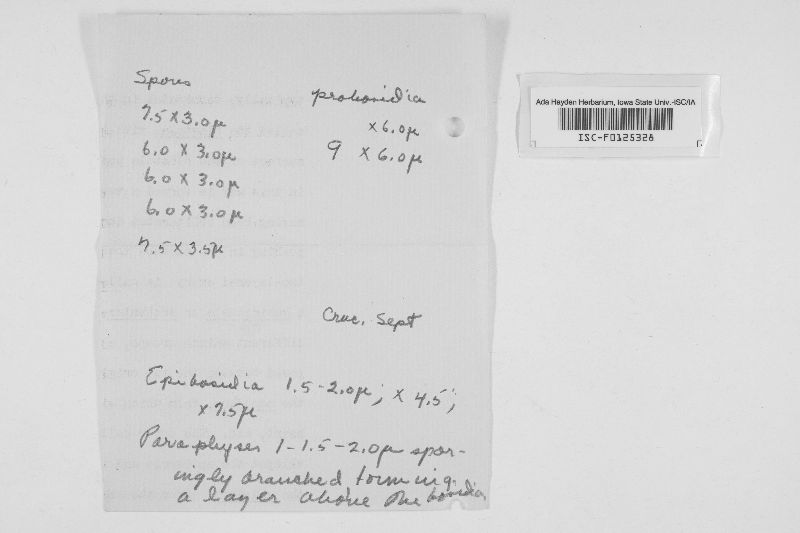 Spores
7.5 X 3.0µ
6.0 X 3.0µ
6.0 X 3.0µ
6.0 X 3.0µ
7.5 X 3.5µ
probasidia
x 6.0µ
9 x 6.0µ
Cruc. Sept
Epibasidia 1.5-2.0µ; x 4.5;
x 7.5µ
Paraphyses 1-1.5-2.0µ spar-
ingly branched forming
a layer above the basidia
Ada Hayden Herbarium, Iowa State Univ.-ISC/IA
ISC-F0125328